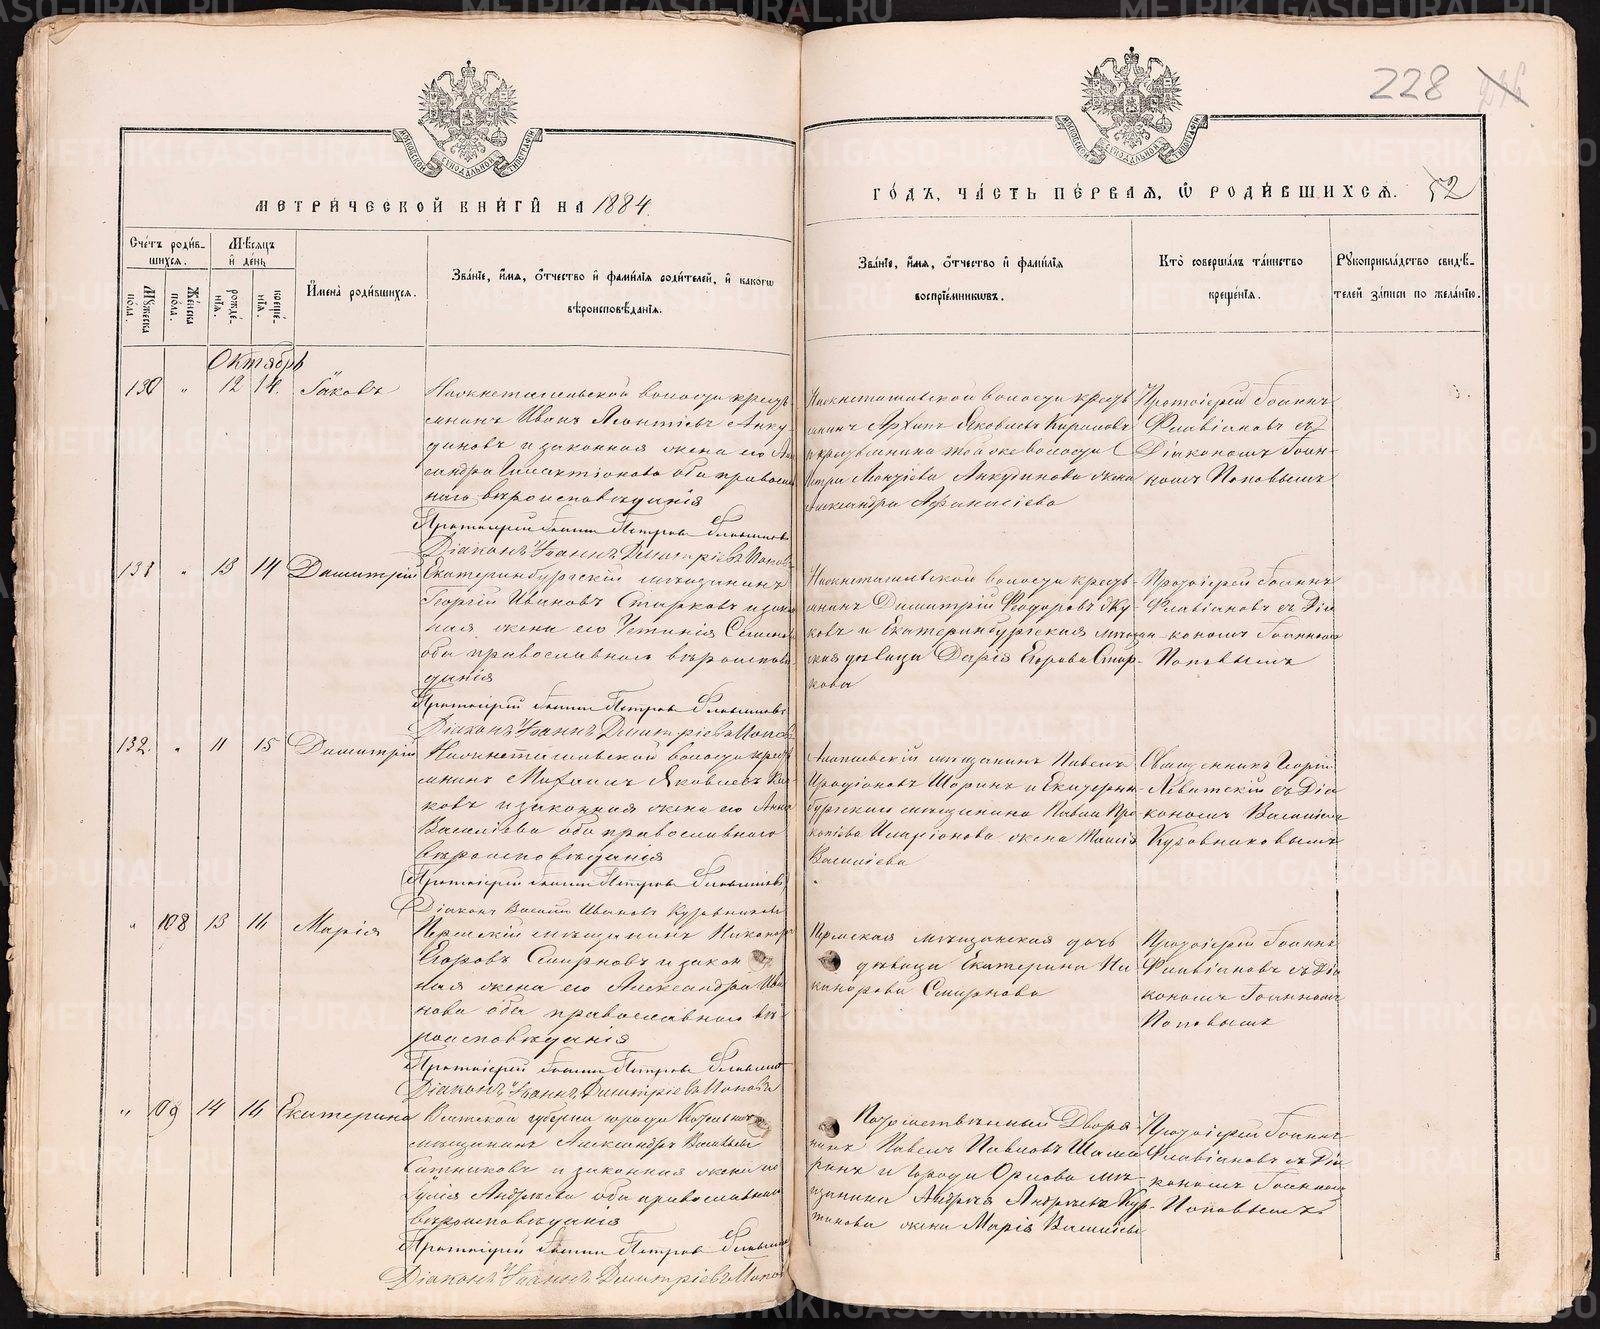 228
МОСКОВСКОЙ СѴНОДАЛЬНОЙ ТИПОГРАФІИ
МОСКОВСКОЙ СѴНОДАЛЬНОЙ ТИПОГРАФІИ
МЕТРИ́ЧЕСКОЙ КНИ́ГИ НА 1884
ГО́ДЪ, ЧА́СТЬ ПЕ́РВАЯ, Ѡ РОДИ́ВШИХСЯ. 52
Сче́тъ роди́в-
шихся.
Мѣ́сяцъ
и де́нь
Му́жеска
пола.
Же́нска
пола.
рожде́-
нія.
креще́-
нія.
И҆мена̀ роди́вшихся.
Зва́ніе, и҆́мя, ѻ҆́тчество и҆ фами́лія роди́телей, и҆ какогѡ
вѣроисповѣ́данія.
Зва́ніе, и҆́мя, ѻ҆́тчество и҆ фами́лія
воспріе́мникѡвъ.
Кто̀ соверша́лъ та́инство
креще́нія.
Рукоприкла́дство свидѣ́-
телей за́писи по жела́нію.
Октябрь
130 " 12 14 Іаковъ
волости кресть-
янинъ Иванъ Леонтіевъ Анку-
диновъ и законная жена его Але-
ксандра Галактіонова оба православ-
наго вѣроисповѣданія
Протоіерей Іоаннъ Петровъ
Діаконъ Іоаннъ Димитріевъ Поповъ
волости кресть-
янинъ Архипъ Яковлевъ
и крестьянина той же волости
Петра Леонтіева Анкудинова жена
Александра Афанасіева
Протоіерей Іоаннъ
Флавіановъ съ
Діакономъ Іоан-
номъ Поповымъ
131 " 13 14 Димитрій
Екатеринбургскій мѣщанинъ
Георгій Ивановъ Старковъ и закон-
ная жена его Устинія Семенова
оба православнаго вѣроисповѣ-
данія
Протоіерей Іоаннъ Петровъ
Діаконъ Іоаннъ Димитріевъ Поповъ
волости кресть-
янинъ Димитрій Феодоровъ Жу-
ковъ и Екатеринбургская мѣщан-
ская дѣвица Дарія Егорова Стар-
кова
Протоіерей Іоаннъ
Флавіановъ съ Діа-
кономъ Іоанномъ
Поповымъ
132. " 11 15 Димитрій
волости кресть-
янинъ Михаилъ Яковлевъ
и законная жена его Анна
Василіева оба православнаго
вѣроисповѣданія
Протоіерей Іоаннъ Петровъ
Діаконъ Василій Ивановъ Кузовниковъ
мѣщанинъ Павелъ
Иродіоновъ Шоринъ и Екатерин-
бургскаго мѣщанина Павла Про-
копіева Иларіонова жена Таисія
Василіева
Священникъ Георгій
Левитскій съ Діа-
кономъ Василіемъ
Кузовниковымъ
" 108 13 16 Марія
Пермскій мѣщанинъ Никаноръ
Егоровъ Смирновъ и закон-
ная жена его Александра Ива-
нова оба православнаго вѣ-
роисповѣданія
Протоіерей Іоаннъ Петровъ
Діаконъ Іоаннъ Димитріевъ Поповъ
Пермская мѣщанская дочь
дѣвица Екатерина Ни-
канорова Смирнова
Протоіерей Іоаннъ
Флавіановъ съ Діа-
кономъ Іоанномъ
Поповымъ
" 109 14 16 Екатерина
Вятской губерніи города
мѣщанинъ Александръ Василіевъ
Ситниковъ и законная жена его
Юлія Андреева оба православнаго
вѣроисповѣданія
Протоіерей Іоаннъ Петровъ
Діаконъ Іоаннъ Димитріевъ Поповъ
Потомственный Дворя-
нинъ Павелъ Павловъ Шама-
ринъ и города Орлова мѣ-
щанина Андрея Андреева
жена Марія Василіева
Протоіерей Іоаннъ
Флавіановъ съ Діа-
кономъ Іоанномъ
Поповымъ
METRIKI.GASO-URAL.RU